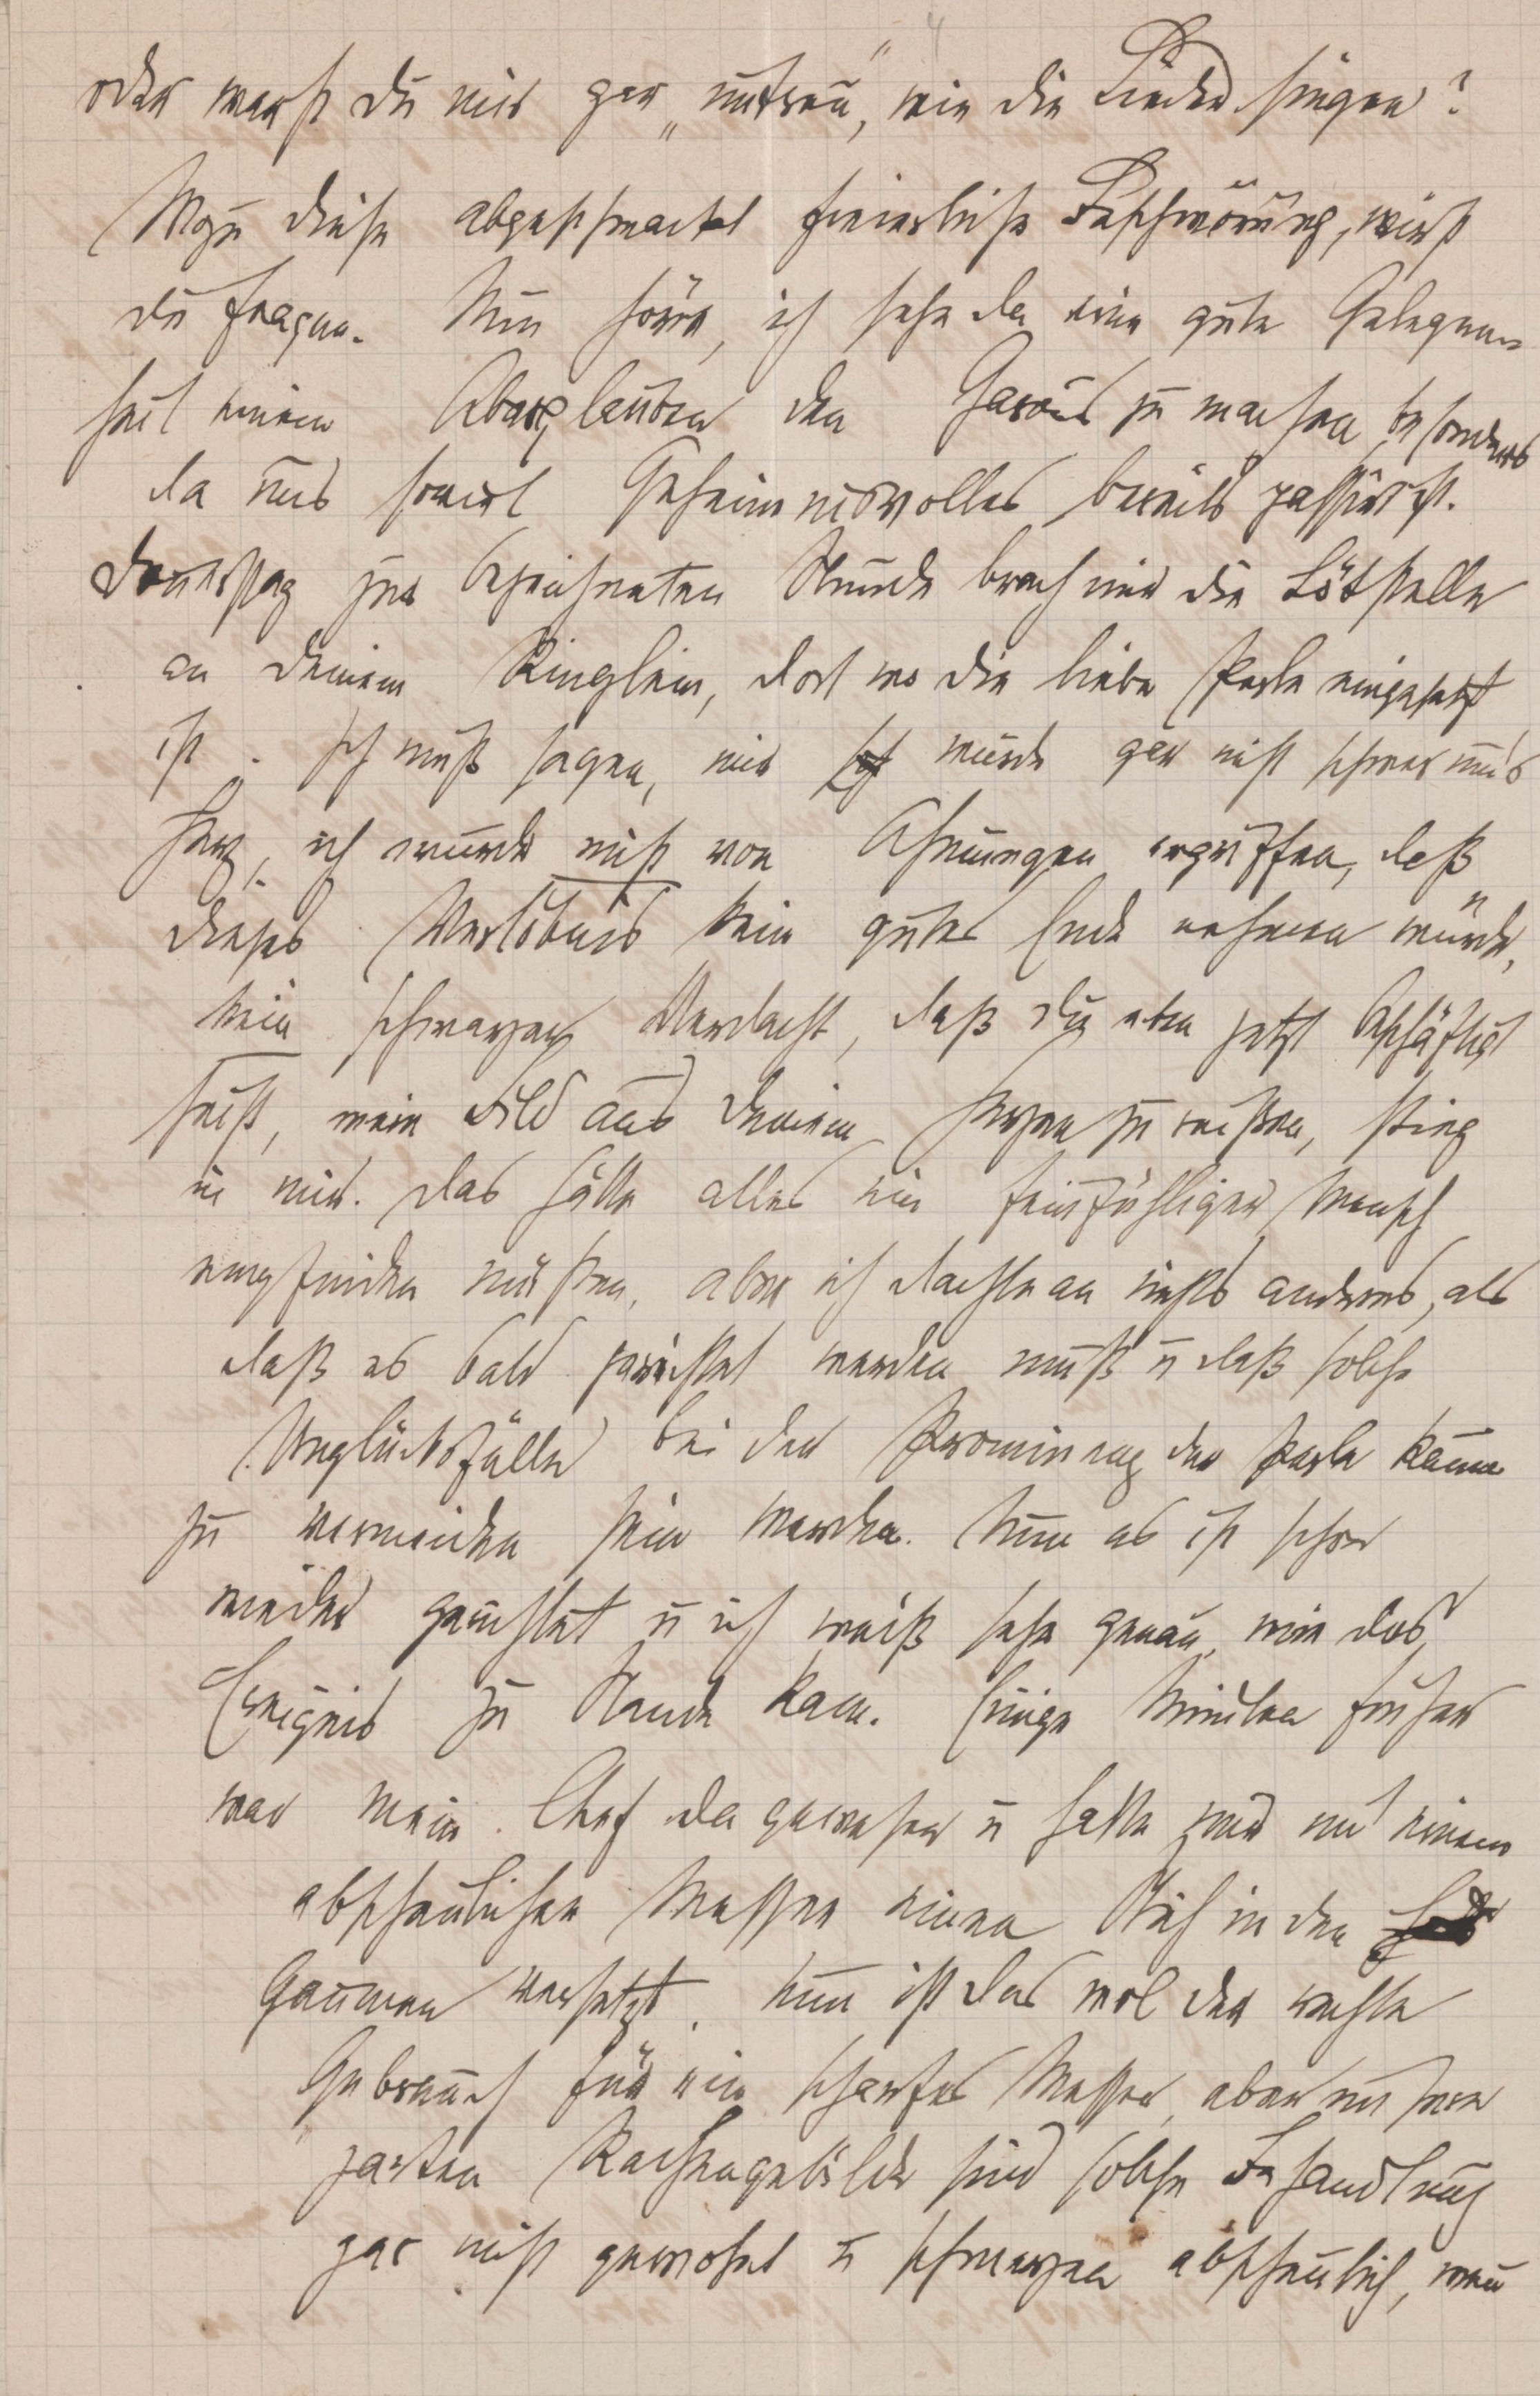 oder warst du mir gar „untreu", wie die Lieder singen?
Wozu diese abgeschmackt feierliche Beschwörung, wirst
du fragen. Nun höre, ich sehe da eine gute Gelegen-
heit einem Aberglauben den Garaus zu machen, besonders
da uns soviel Geheimnisvolles bereits passirt ist.
Donnerstag zur bezeichneten Stunde brach mir die Lötstelle
an deinem Ringlein, dort wo die liebe Perle eingesetzt
ist. Ich muß sagen, mir wurde gar nicht schwer ums
Herz, ich wurde nicht von Ahnungen ergriffen, daß
dieses Verlöbnis kein gutes Ende nehmen würde,
kein schwarzer Verdacht, daß du eben jetzt beschäftigt
seist, mein Bild aus deinem Herzen zu reißen, stieg
in mir. Das hätte alles ein feinfühliger Mensch
empfinden müssen, aber ich dachte an nichts anderes, als
daß es bald gerichtet werden muß u daß solche
Unglücksfälle bei der Prominenz der Perle kaum
zu vermeiden sein werden. Nun es ist schon
wieder gerichtet u ich weiß sehr genau, wie das
Ereignis zu Stande kam. Einige Minuten früher
war mein Chef da gewesen u hatte mir mit einem
abscheulichen Messer einen Stich in den
Gaumen versetzt. Nun ist das wol der rechte
Gebrauch für ein scharfes Messer, aber unsere
zarten Rachengebilde sind solche Behandlung
gar nicht gewohnt u schmerzen abscheulich, wenn